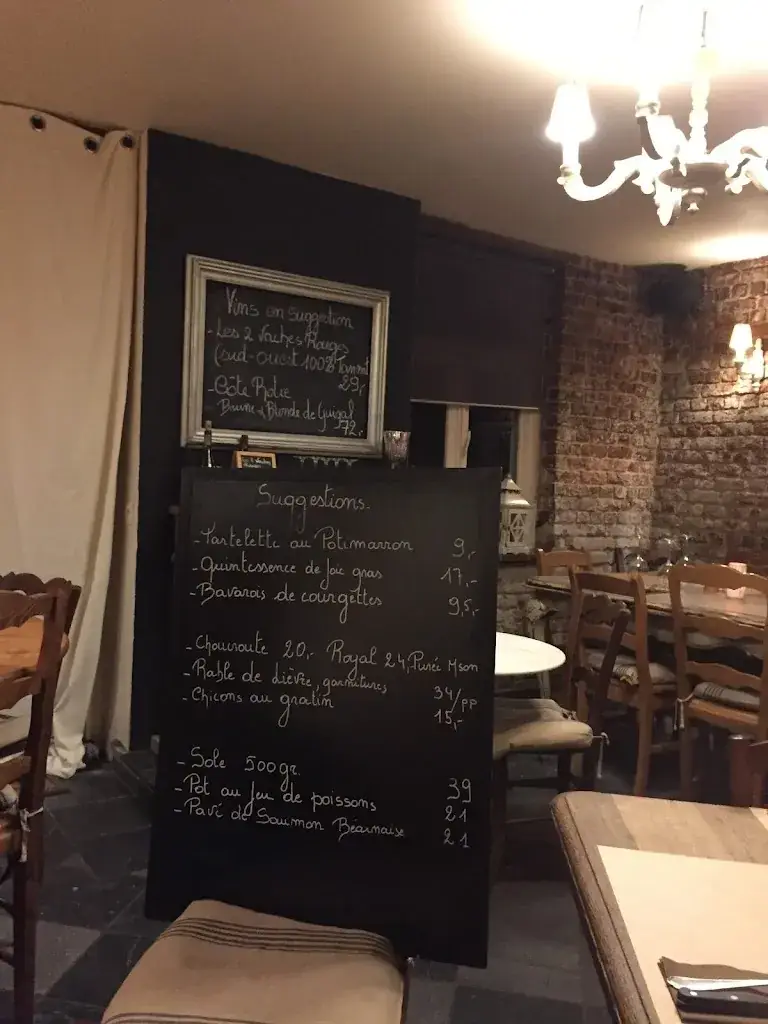 Vins en suggestion
- Les 2 Vaches Rouges
(sud-ouest 100% Tannat
29,-
- Côte Rotie
Brune & Blonde de Guigal
72,-
Suggestions
- Tartelette au Potimarron 9,-
- Quintessence de foie gras 17,-
- Bavarois de courgettes 9,5,-
- Choucroute 20,- Royal 24, Purée Mson
- Rable de Lièvre, garnitures 34/pp
- Chicons au gratin 15,-
- Sole 500gr. 39
- Pot au feu de poissons 21
- Pavé de Saumon Béarnaise 21